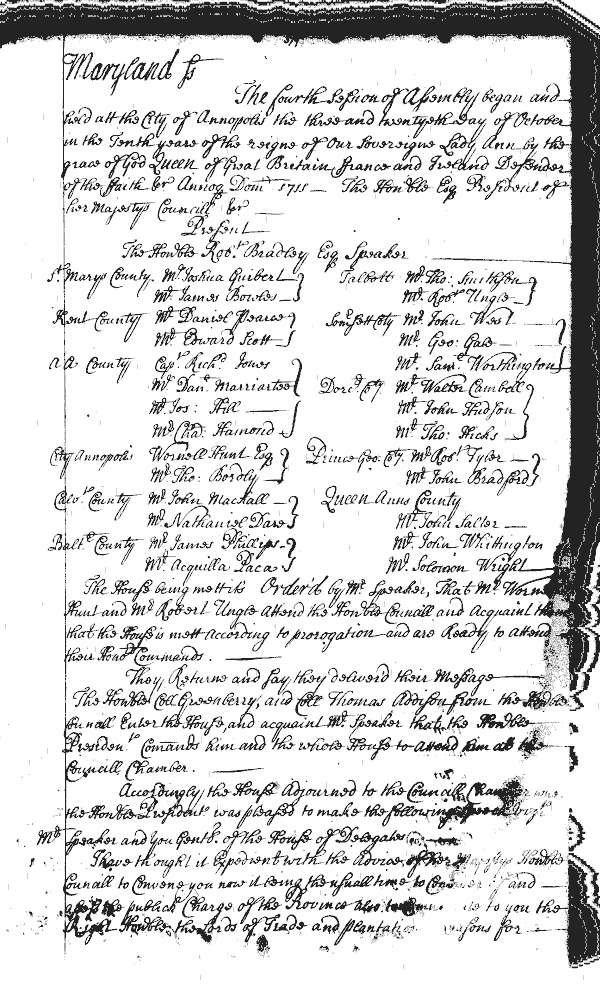 Maryland ss
The fourth Session of Assembly began and
held att the City of Annopolis the three and twentyeth day of October
in the Tenth yeare of the reigne of Our Sovereigne Lady Ann by the
grace of God Queen of Great Britain ffrance and Ireland Defender
of the ffaith &c Annoq Dom 1711 — The Honble Esq President of
her Majestys Councill &c
Present
The Honble Robt Bradley Esq Speaker
St Marys County. Mr Joshua Guibert
Mr James Bowles
Kent County Mr Daniel Pearce
Mr Edward Scott
A A County Capt Richd Jones
Mr Danl Marriartee
Mr Jos: Hill
Mr Cha: Hamond
City Annopolis Wornell Hunt Esq
Mr Tho: Bordly
Calvt County Mr John Mackall
Mr Nathaniel Dare
Balte County Mr James Phillips
Mr Acquilla Paca
Talbott Mr Tho: Smithson
Mr Robt Ungle
Somsett Cty Mr John West
Mr Geo: Gale
Mr Saml Worthington
Dorct Cty. Mr Walter Cambell
Mr John Hudson
Mr Tho: Hicks
Prince Geo: Cty. Mr Robt Tyler
Mr John Bradford
Queen Anns County
Mr John Salter
Mr John Whittington
Mr Solomon Wright
The House being mett its Order'd by Mr Speaker, That Mr Worne
Hunt and Mr Robert Ungle Attend the Honble Councill and Acquaint them
that the House is mett According to prorogation and are Ready to attend
their Honrs Commands.
They Returne and say they deliverd their Message
The Honble Coll Greenberry, and Coll Thomas Addison from the Honble
Councill Enter the House, and acquaint Mr Speaker that the Honble
Presidents Comands him and the whole House to attend him at the
Councill Chamber.
Accordingly the House Adjourned to the Councill Chamber
the Honble President was pleased to make the following Speech
Mr Speaker and you Gents. of the House of Delegates
I have thought it Expedient with the Advice of her Majestys Honble
Councill to Convene you now it being the usuall time to and
the publick Charge of the Province also to you the
Right Honble the Lords of Trade and plantations for